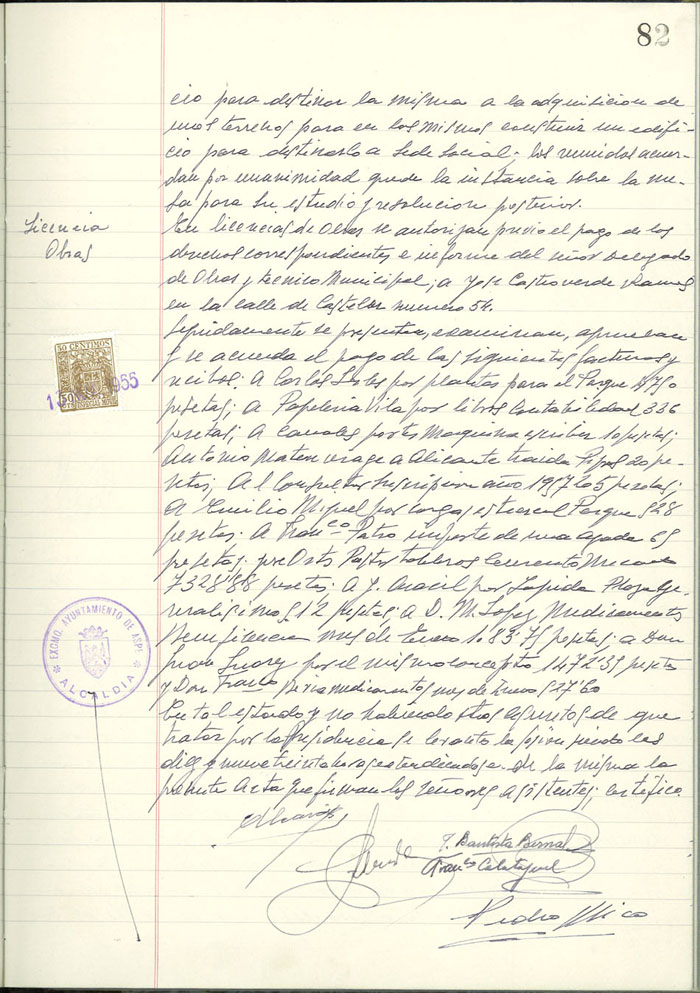 82
cio para destinar la misma a la adquisicion de
unos terrenos para en los mismos construir un edifi-
cio para destinarlo a Sede Social; los reunidos acuer-
dan por unanimidad quede la instancia sobre la me-
sa para su estudio y resolucion posterior.
Licencia
Obras
En licencias de Obras se autorizan previo el pago de los
derechos correspondientes e informe del señor Delegado
de Obras y tecnico Municipal; a Jose Castroverde
en la calle de Castelar numero 54.
Seguidamente se presentan, examinan, aprueban
y se acuerda el pago de las siguientes facturas y
recibos: A Carlos por plantas para el Parque
pesetas; a Papeleria Vila por libros Contabilidad 336
pesetas; A Canales portes Maquina escribir 10 pesetas;
Antonio viage a Alicante traida 20 pe-
setas; Al Consultor suscripcion año 195 pesetas;
A Emilio Miquel por cargas Parque 528
pesetas: A Franco Pastor importe de una 65
pesetas: Pastor Cemento
7328'88 pesetas: A J. Aracil por Lapida Plaza Ge-
neralisimo 512 pesetas; a D. M. Lopez Medicamentos
Beneficencia mes de Enero 1.83 75 pesetas; a Don
por el mismo concepto 1472'35 pesetas
y Don medicamentos mes de Enero 517'60
En tal estado y no habiendo otros asuntos de que
tratar por la Presidencia se levanta la sesion siendo las
diez y nueve treinta horas extendiendose de la misma la
presente Acta que firman los señores asistentes; certifico.
50 CENTIMOS
50
1955
EXCMO. AYUNTAMIENTO DE ASPE
ALCALDIA
J. Bautista Bernal
Franco Calatayud
Pedro Mico